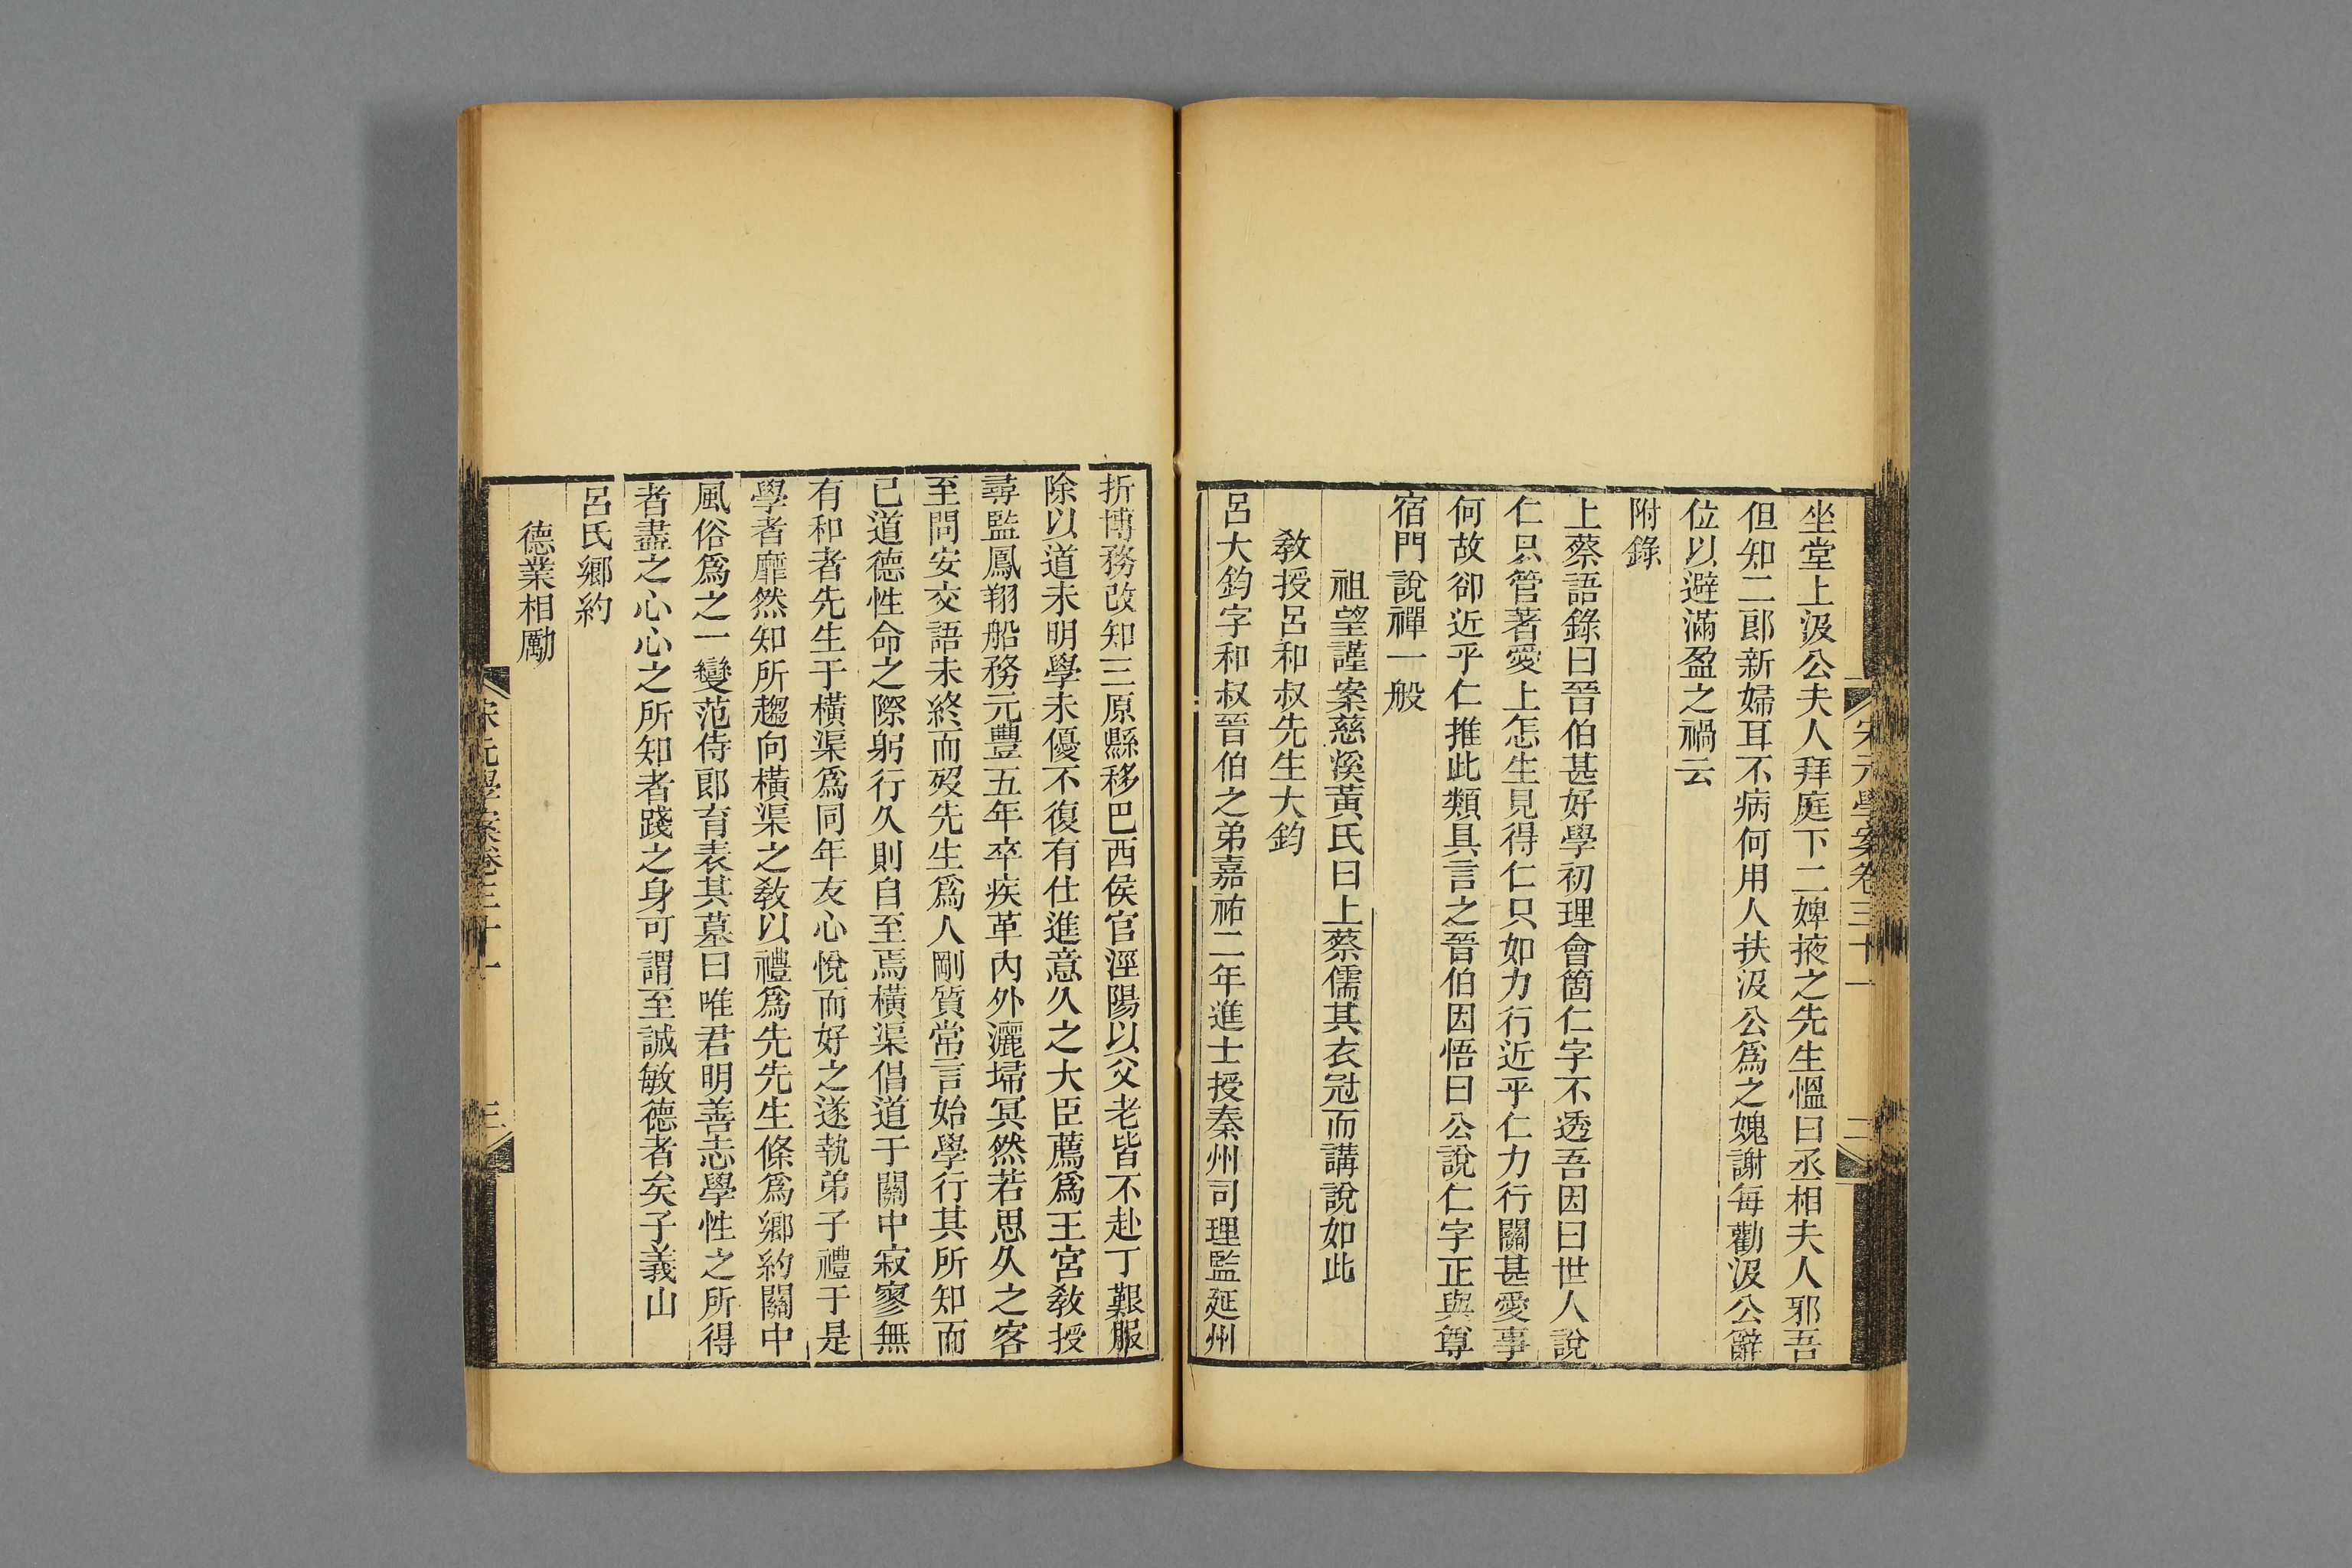 宋元學案卷三十一
二
坐堂上汲公夫人拜庭下二婢掖之先生慍曰丞相夫人邪吾
但知二郎新婦耳不病何用人扶汲公爲之媿謝每勸汲公辭
位以避滿盈之禍云
附錄
上蔡語錄曰晉伯甚好學初理會箇仁字不透吾因曰世人說
仁只管著愛上怎生見得仁只如力行近乎仁力行關甚愛事
何故卻近乎仁推此類具言之晉伯因悟曰公說仁字正與尊
宿門說禪一般
祖望謹案慈溪黃氏曰上蔡儒其衣冠而講說如此
敎授呂和叔先生大鈞
呂大鈞字和叔晉伯之弟嘉祐二年進士授秦州司理監延州
折博務改知三原縣移巴西侯官涇陽以父老皆不赴丁艱服
除以道未明學未優不復有仕進意久之大臣薦爲王宮敎授
尋監鳳翔船務元豐五年卒疾革內外灑埽冥然若思久之客
至問安交語未終而歿先生爲人剛質常言始學行其所知而
已道德性命之際躬行久則自至焉橫渠倡道于關中寂寥無
有和者先生于橫渠爲同年友心悅而好之遂執弟子禮于是
學者靡然知所趨向橫渠之敎以禮爲先先生條爲鄉約關中
風俗爲之一變范侍郎育表其墓曰唯君明善志學性之所得
者盡之心心之所知者踐之身可謂至誠敏德者矣子義山
呂氏鄉約
德業相勵
宋元學案卷三十一
三